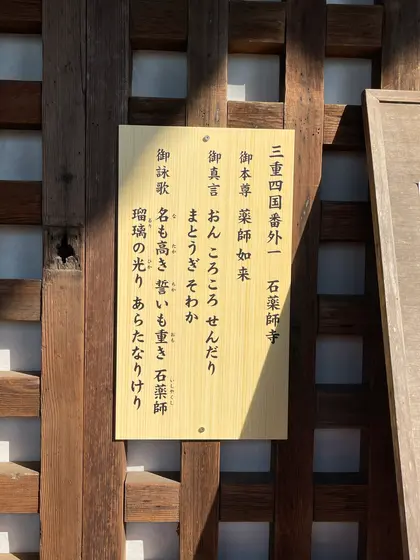 三重四国番外一 石薬師寺
御本尊 薬師如来
御真言 おん ころころ せんだり
まとうぎ そわか
御詠歌 名も高き 誓いも重き 石薬師
瑠璃の光り あらたなりけり